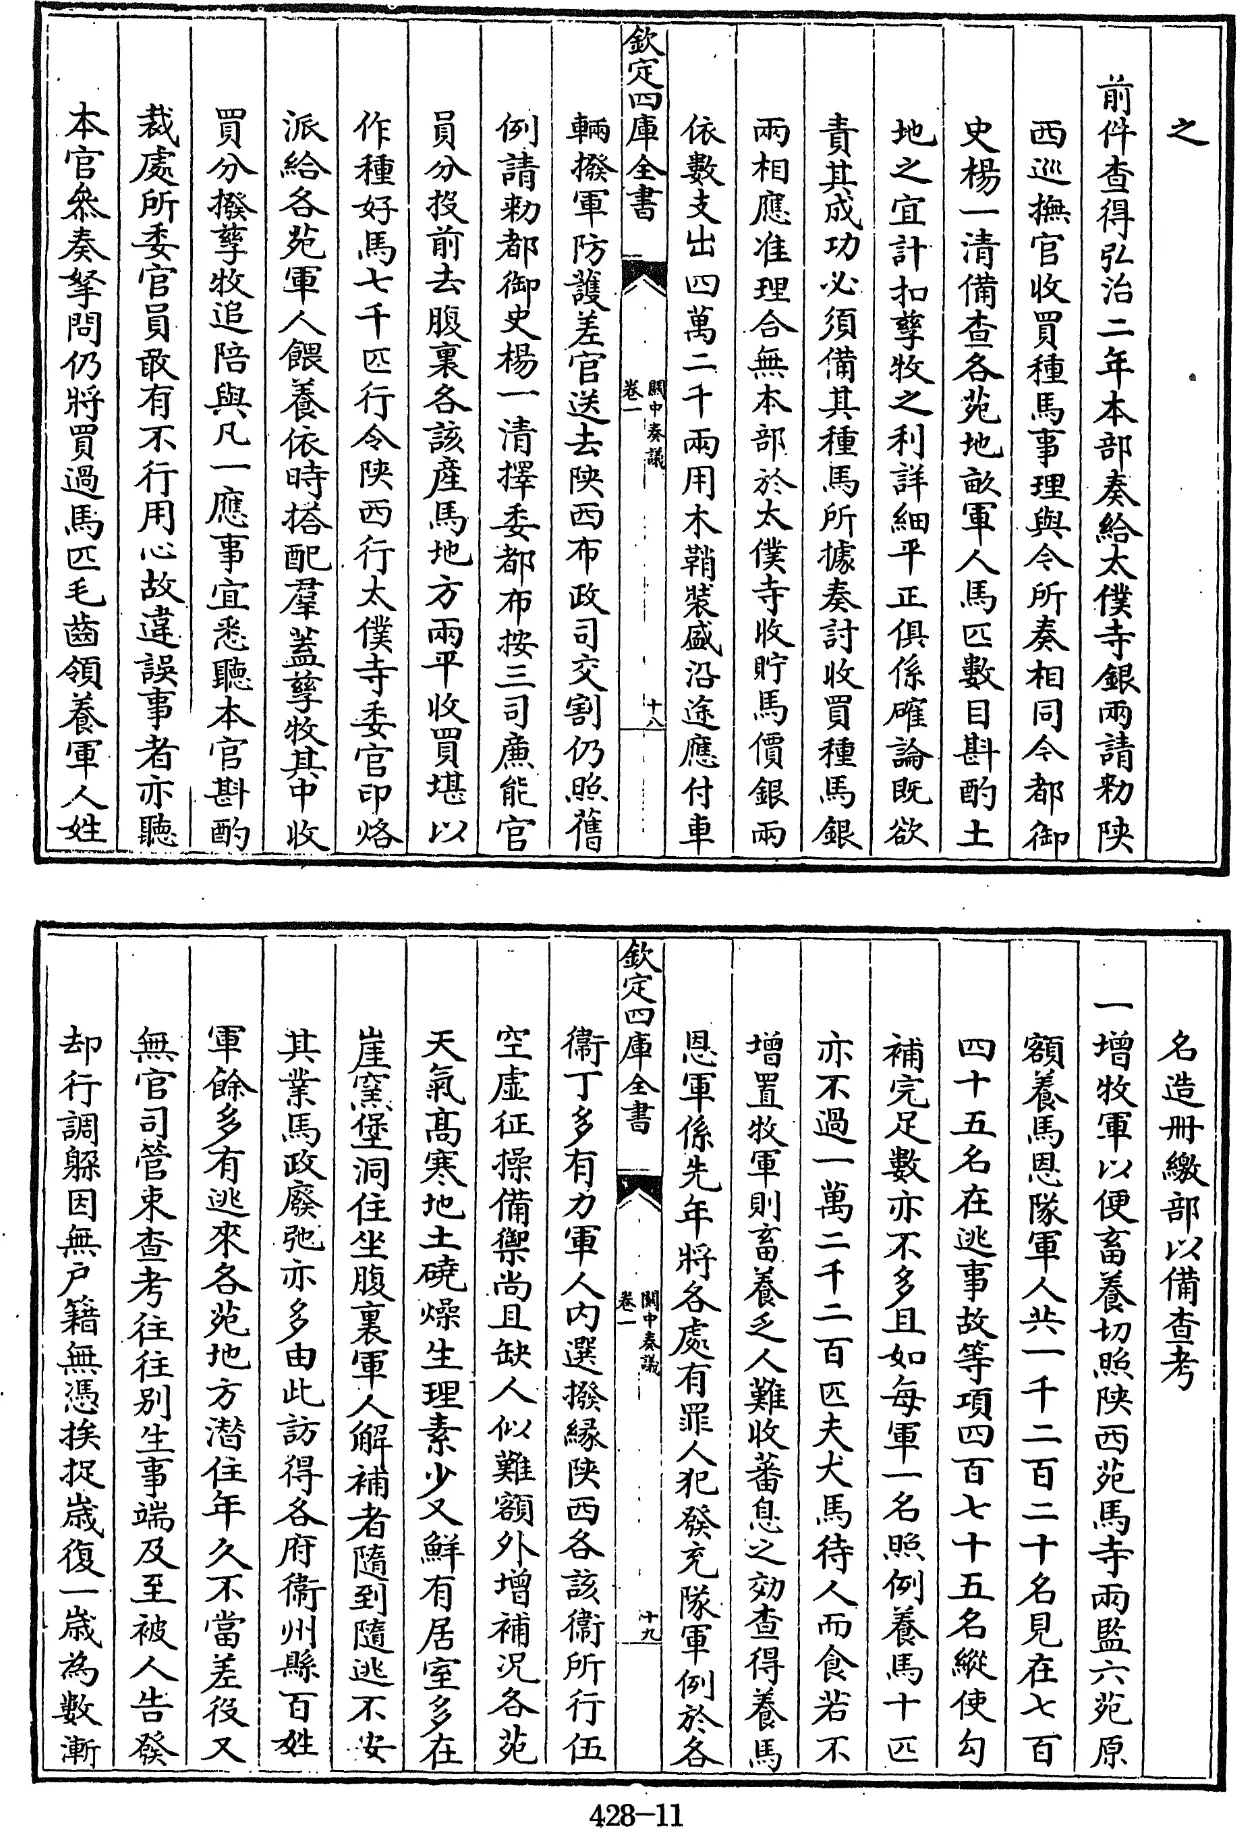 之
前件查得弘治二年本部奏給太僕寺銀兩請勅陜
西巡撫官收買種馬事理與今所奏相同今都御
史楊一清備查各苑地畝軍人馬匹數目斟酌土
地之宜計扣孳牧之利詳細平正俱係確論既欲
責其成功必須備其種馬所據奏討收買種馬銀
兩相應准理合無本部於太僕寺收貯馬價銀兩
依數支出四萬二千兩用木鞘裝盛沿途應付車
欽定四庫全書
關中奏議
卷一
十八
輛撥軍防護差官送去陜西布政司交割仍照舊
例請勅都御史楊一清擇委都布按三司廉能官
員分投前去腹裏各該產馬地方兩平收買堪以
作種好馬七千匹行令陜西行太僕寺委官印烙
派給各苑軍人餵養依時搭配羣蓋孳牧其中收
買分撥孳牧追陪與凡一應事宜悉聽本官斟酌
裁處所委官員敢有不行用心故違誤事者亦聽
本官叅奏拏問仍將買過馬匹毛齒領養軍人姓
名造冊繳部以備查考
一增牧軍以便畜養切照陜西苑馬寺兩監六苑原
額養馬恩隊軍人共一千二百二十名見在七百
四十五名在逃事故等項四百七十五名縱使勾
補完足數亦不多且如每軍一名照例養馬十匹
亦不過一萬二千二百匹夫犬馬待人而食若不
增置牧軍則畜養乏人難收蕃息之効查得養馬
恩軍係先年將各處有罪人犯發充隊軍例於各
欽定四庫全書
關中奏議
卷一
十九
衞丁多有力軍人内選撥縁陜西各該衞所行伍
空虛征操備禦尚且缺人似難額外增補况各苑
天氣高寒地土磽燥生理素少又鮮有居室多在
崖窰堡洞住坐腹裏軍人解補者隨到隨逃不安
其業馬政廢弛亦多由此訪得各府衞州縣百姓
軍餘多有逃來各苑地方潛住年久不當差役又
無官司管束查考往往别生事端及至被人告發
却行調躲因無戶籍無憑挨捉歳復一歳為數漸
428-11